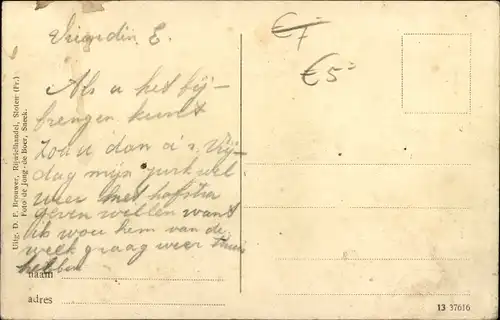 Vriendin E.
Als u het bij-
brengen kunt
zou u dan a.s. Vrij-
dag mijn jurk wel
weer met hofstra
geven willen want
ik wou hem van de
week graag weer thuis
hebben
naam
adres
Uitg. D. F. Brouwer, Rijwielhandel, Sloten (Fr.)
Foto de Jong - de Boer, Sneek.
€7-
€5=
13 37616